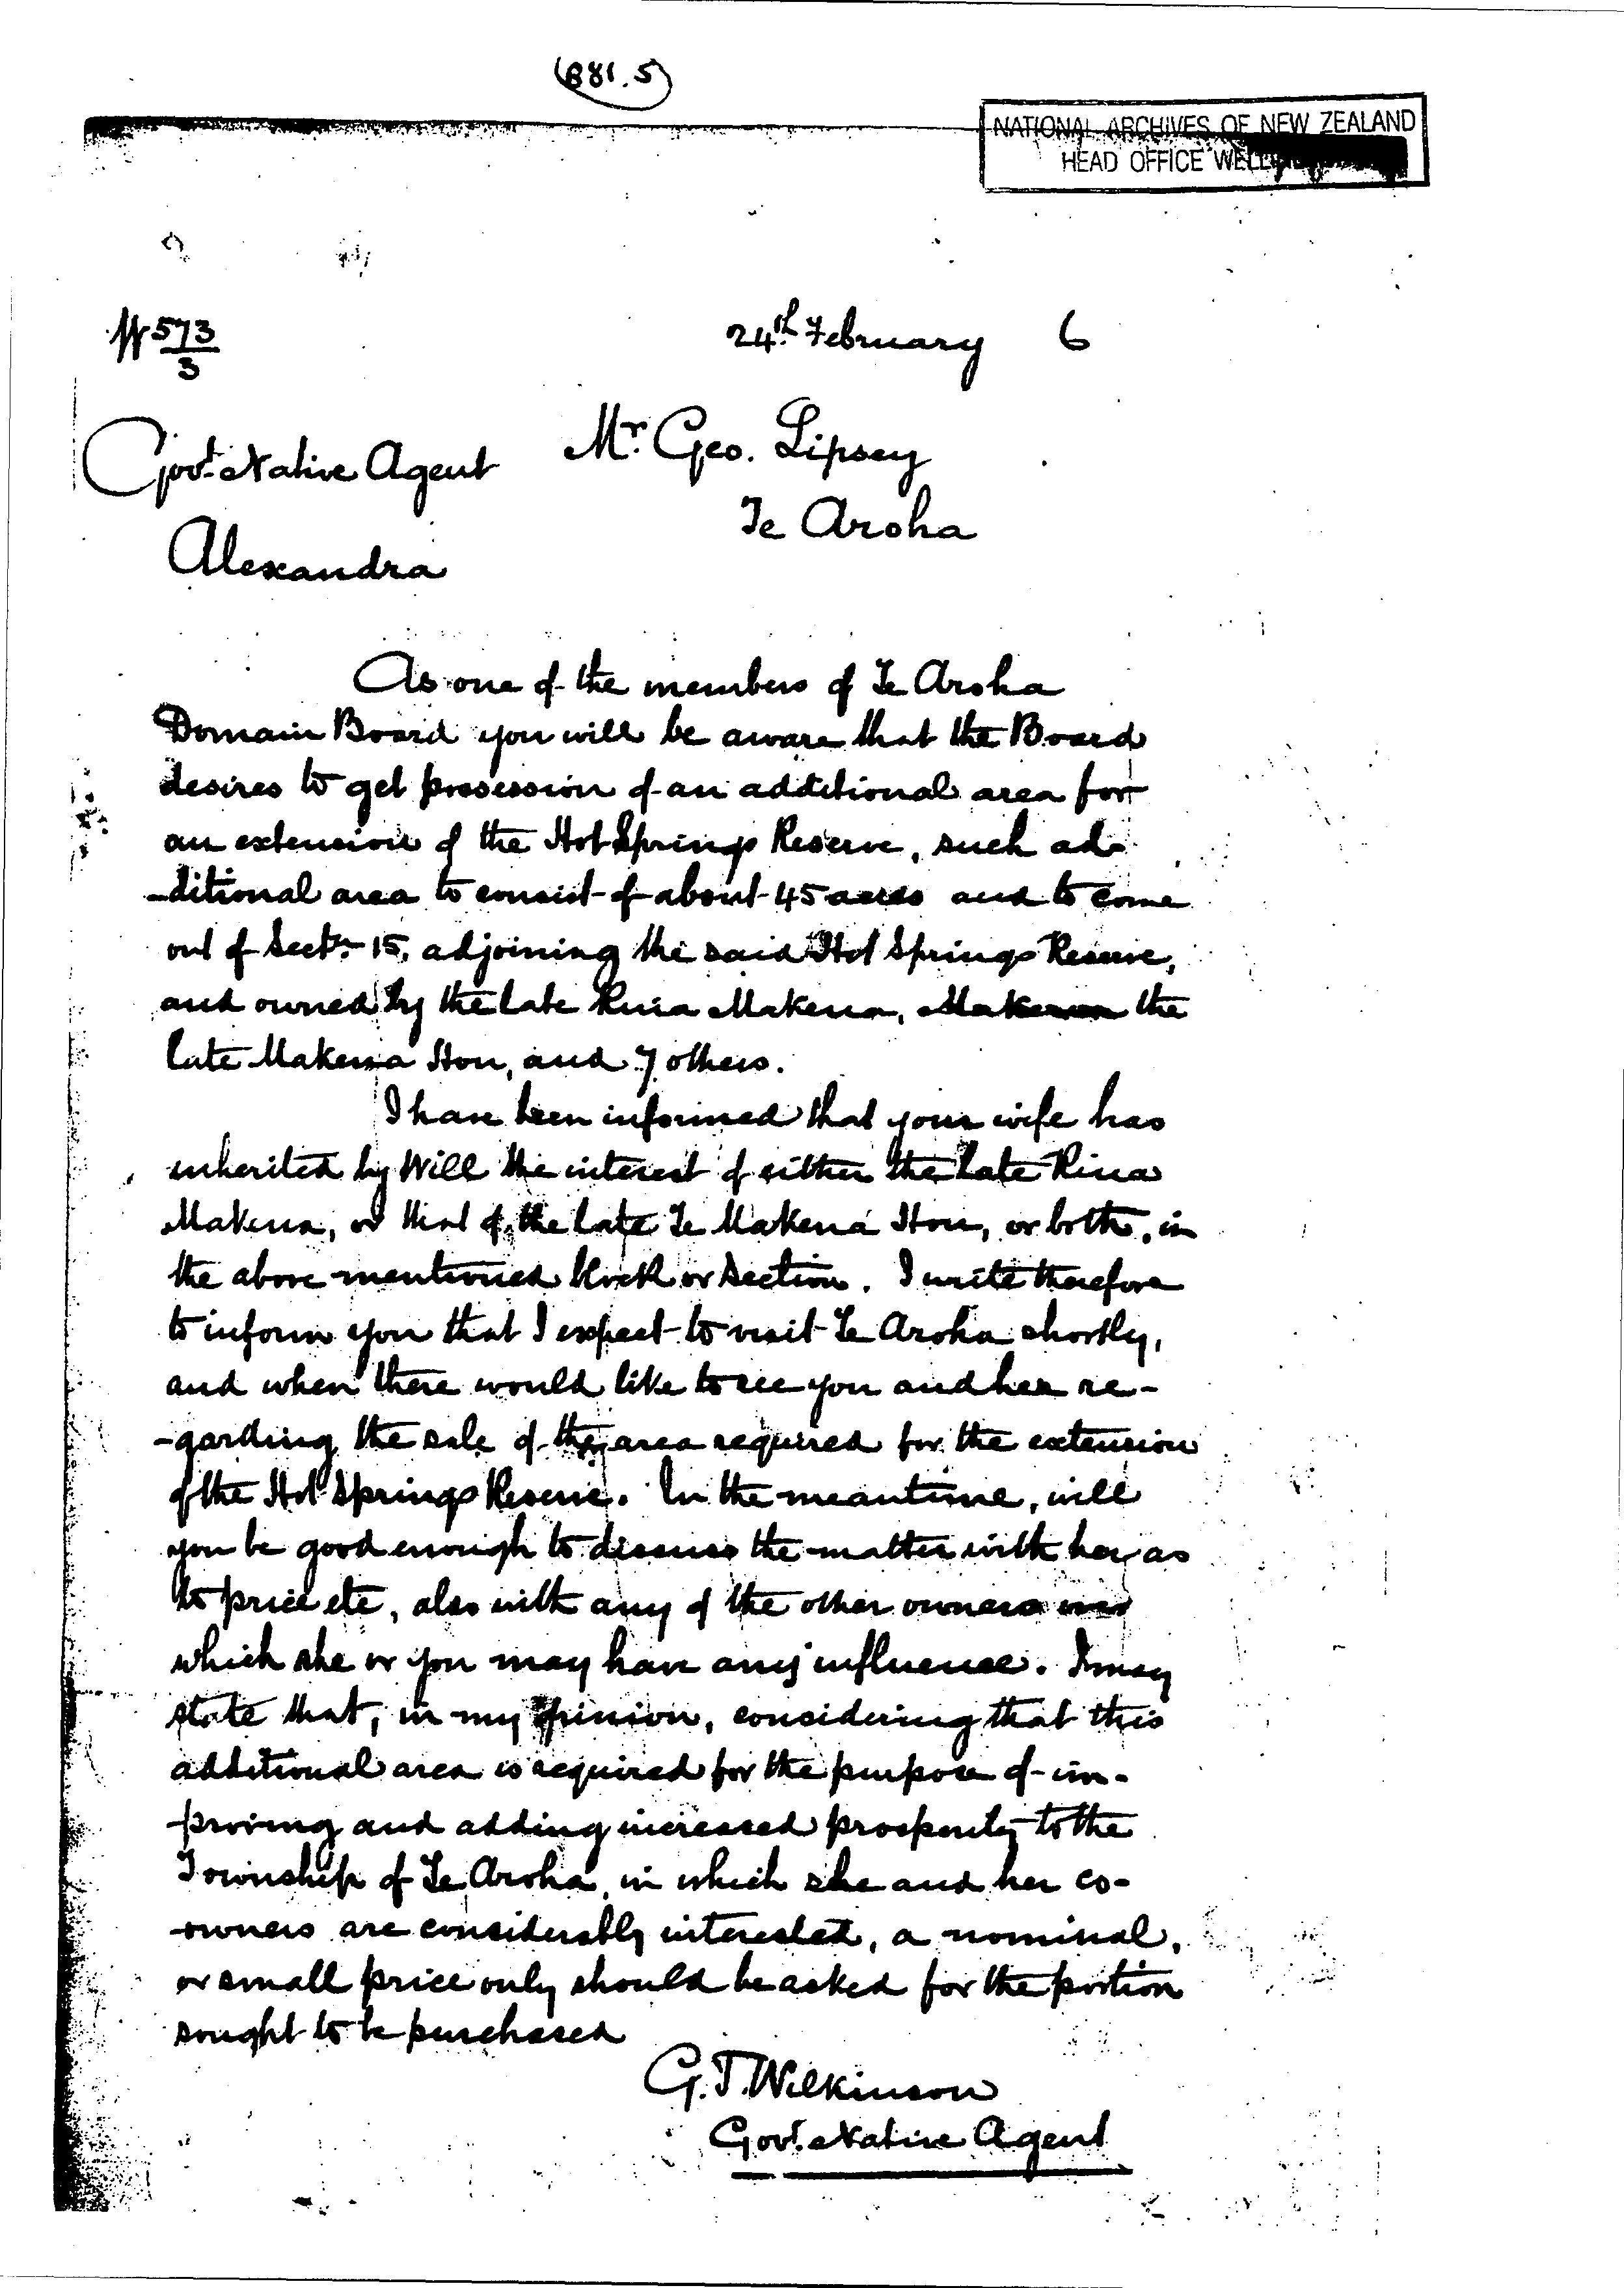 (881.5)
NATIONAL ARCHIVES OF NEW ZEALAND
HEAD OFFICE
573
3
24th February 6
Govt. Native Agent
Mr. Geo. Lipsey
Te Aroha
Alexandra
As one of the members of Te Aroha
Domain Board you will be aware that the Board
desires to get possession of an additional area for
an extension of the Hot Springs Reserve, such ad-
-ditional area to consist of about 45 acres and to come
out of Sectn. 15, adjoining the said Hot Springs Reserve,
and owned by the late Rina Makena, the
late Makena Hou, and 7 others.
I have been informed that your wife has
inherited by Will the interest of either the late Rina
Makena, or that of the late Te Makena Hou, or both, in
the above mentioned block or section. I write therefore
to inform you that I expect to visit Te Aroha shortly,
and when there would like to see you and her re-
-garding the sale of the area required for the extension
of the Hot Springs Reserve. In the meantime, will
you be good enough to discuss the matter with her as
to price etc, also with any of the other owners over
which she or you may have any influence. I may
state that, in my opinion, considering that this
additional area is required for the purpose of im-
-proving and adding increased prosperity to the
Township of Te Aroha, in which she and her co-
-owners are considerably interested, a nominal,
or small price only should be asked for the portion
sought to be purchased
G.T. Wilkinson
Govt. Native Agent